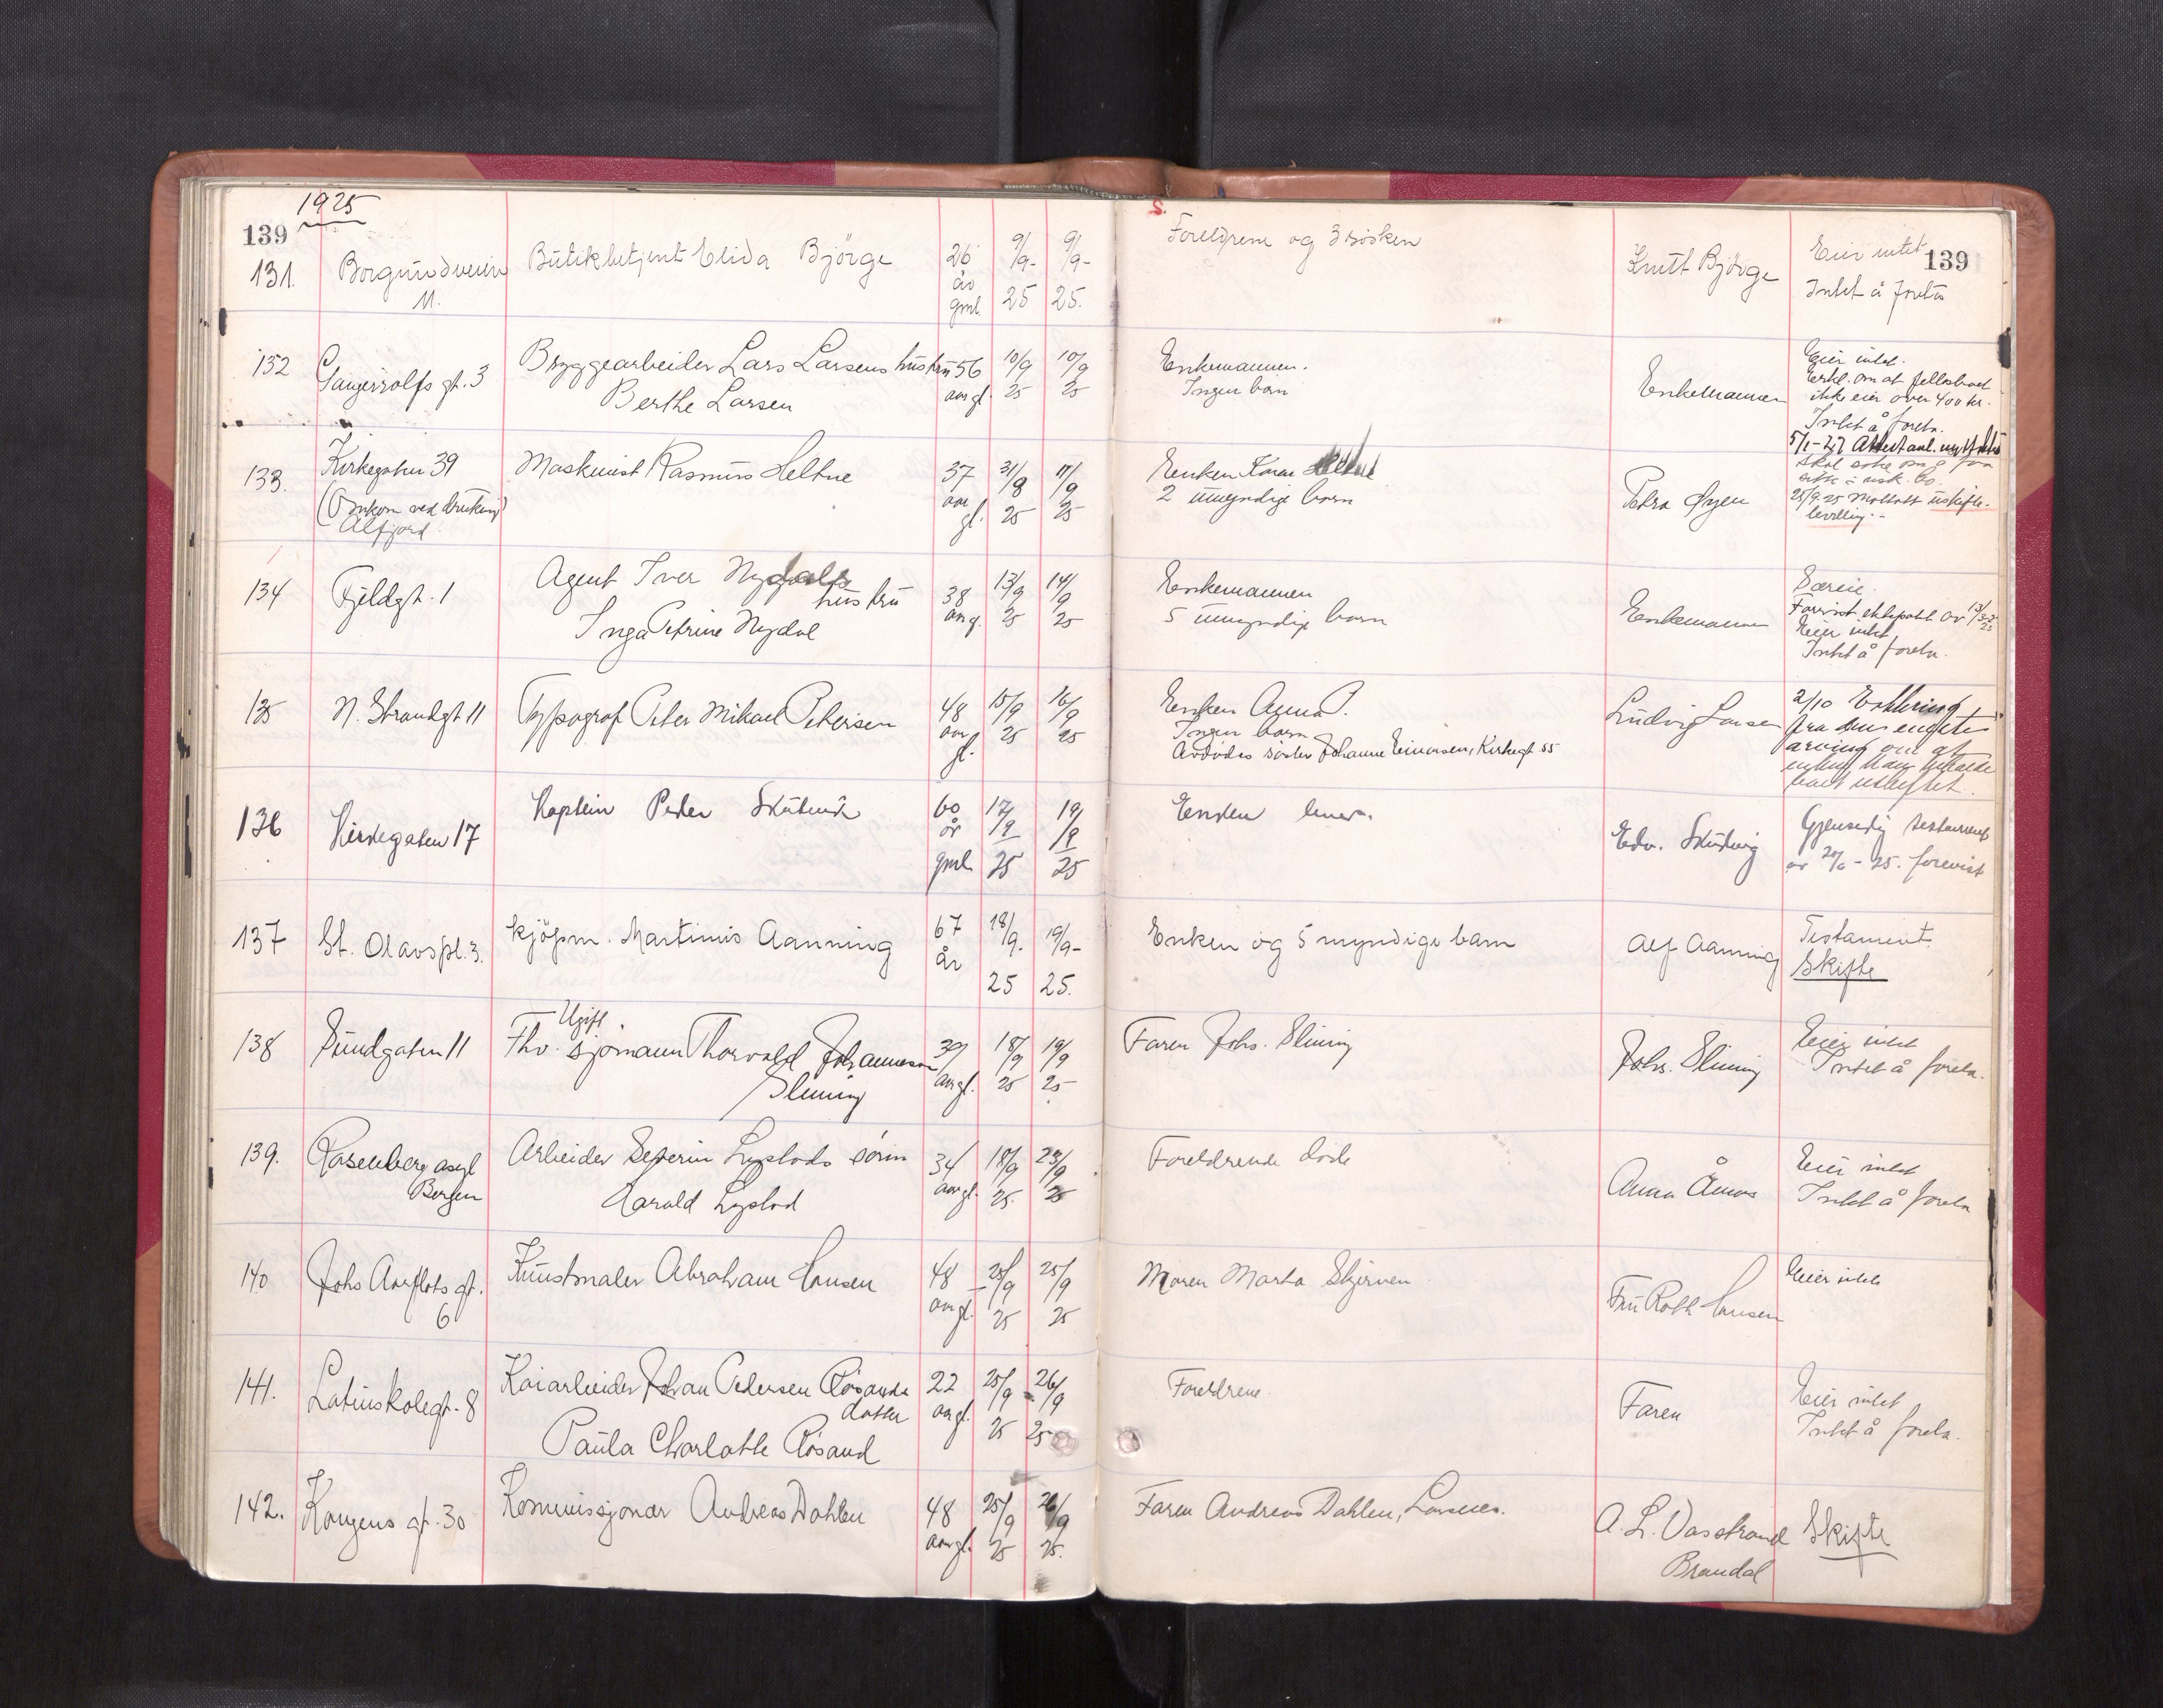 1925
139
S.
139
131.
Borgundveien
11.
Butikbetjent Elida Bjørge
26
år
gml.
9/9-
25
9/9-
25.
Foreldrene og 3 søsken
Knut Bjørge
Eier intet
Intet å foreta
132
Gangerrolfs gt. 3
Bryggearbeider Lars Larsens hustru
Berthe Larsen
56
aar gl.
10/9
25
10/9
25
Enkemannen.
Ingen barn
Enkemannen
Eier intet.
Erkl. om at fellesboet
ikke eier over 400 kr.
Intet å foreta.
133.
Kirkegaten 39
(Omkom ved drukning)
Alfjord
Maskinist Rasmus Heltne
37
aar
gl.
31/8
25
11/9
25
Enken
2 umyndige barn
Petra Øyen
5/1-27 Attest anl.
25/9 25 Mottatt uskifte-
bevilling.-
134
Fjeldgt. 1
Agent Iver Nydals
hustru
Inga Petrine Nydal
38
aar g.
13/9
25
14/9
25
Enkemannen
5 umyndige barn
Enkemannen
Særeie.
Forevist ektepakt av
Eier intet
Intet å foreta.
135
N. Strandgt 11
Typograf Peter Mikael Petersen
48
aar
gl.
15/9
25
16/9
25
Enken Anna P.
Ingen barn
Avdødes søster Johanne Einarsen, Kirkegt 55
Ludvig Larsen
2/10 Erklæring
fra den eneste
arving om at
136
Kirkegaten 17
Kaptein Peder Skutvik
60
år
gml.
17/9
25
19/9
25
Enken lever.
Edv. Skutvig
Gjensidig testament
av 20/6 - 25. forevist
137
St. Olavspl. 3.
Kjøpm. Martinus Aanning
67
år
18/9.
25
19/9-
25.
Enken og 5 myndige barn
Alf Aanning
Testament.
Skifte
138
Sundgaten 11
Ugift
Fhv. sjømann Thorvald Johannesen
Slinning
39
aar gl.
18/9
25
19/9
25
Faren Johs. Slinning
Johs. Slinning
Eier intet
Intet å foreta.
139.
Rosenberg asyl
Bergen
Arbeider Severin Lystads sønn
Harald Lystad
34
aar gl.
18/9
25.
23/9
25
Foreldrene døde
Anna Åmås
Eier intet
Intet å foreta
140
Johs Aarflots gt.
6
Kunstmaler Abraham Hansen
48
aar gl.
25/9
25
Moren Marta Skjerven
Fru Roth Hansen
Eier intet
141.
Latinskolegt. 8
Kaiarbeider Johan Pedersen Røsands
datter
Paula Charlotte Røsand
22
aar gl.
25/9
25
26/9
25
Foreldrene.
Faren
Eier intet
Intet å foreta.
142.
Kongens gt. 30
Kommissjonær Andreas Dahlen
48
aar gl.
25/9
25
26/9
25.
Faren Andreas Dahlen, Larsnes.
A. L. Vasstrand
Brandal
Skifte